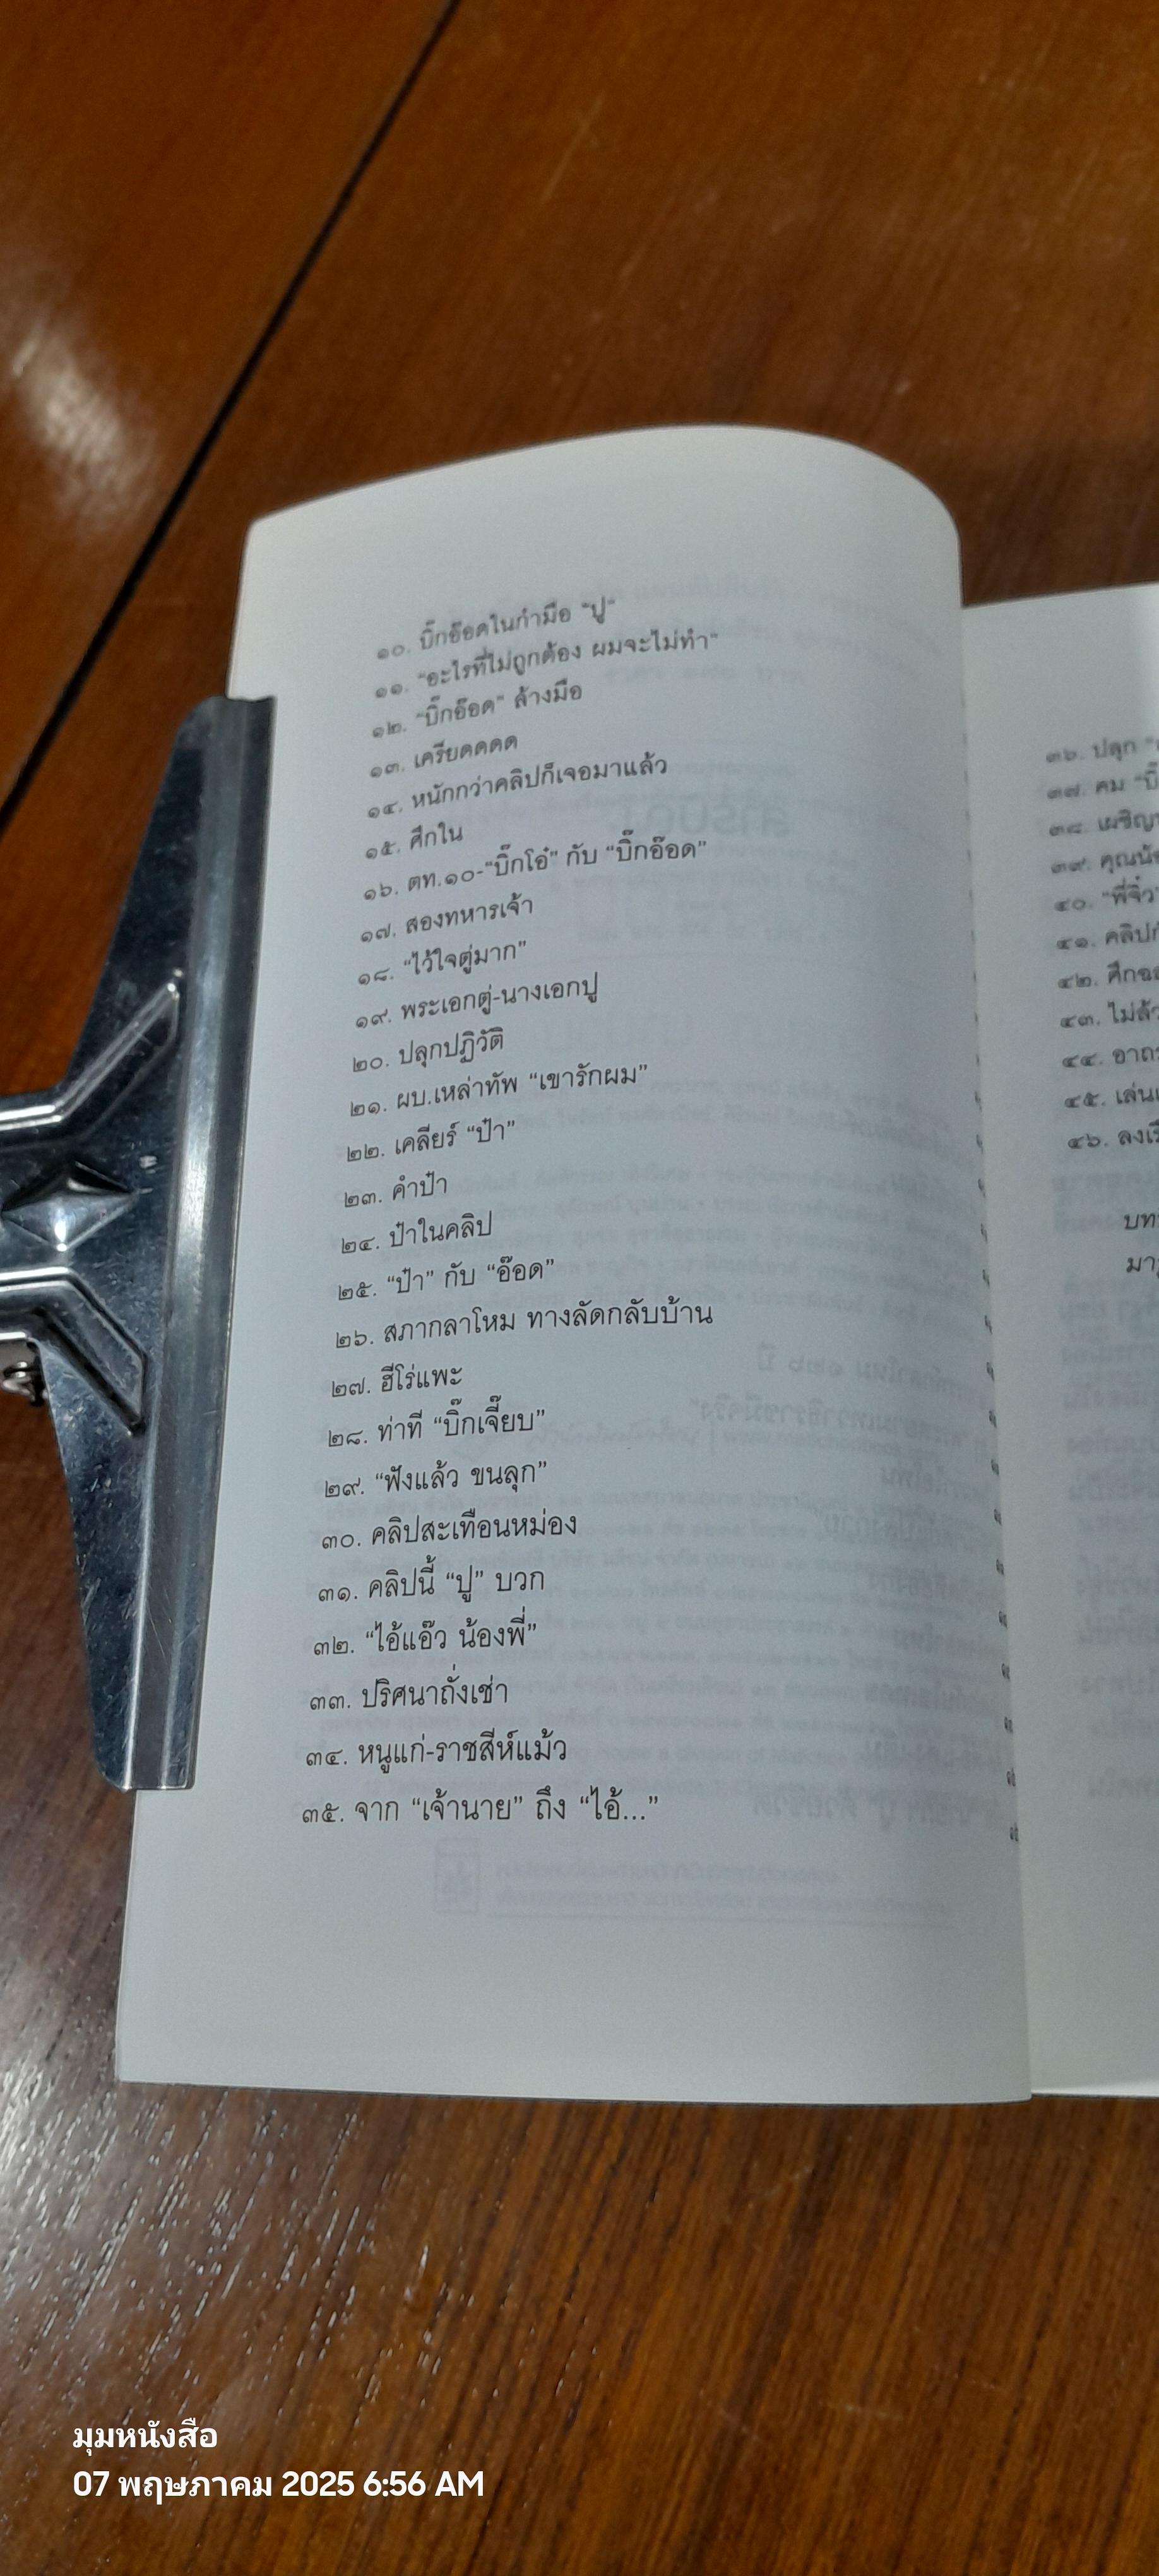 ๑๐. บิ๊กอ๊อดในกำมือ “ปู”
๑๑. “อะไรที่ไม่ถูกต้อง ผมจะไม่ทำ”
๑๒. “บิ๊กอ๊อด” ล้างมือ
๑๓. เครียดดดด
๑๔. หนักกว่าคลิปก็เจอมาแล้ว
๑๕. ศึกใน
๑๖. ตท.๑๐-“บิ๊กโอ๋” กับ “บิ๊กอ๊อด”
๑๗. สองทหารเจ้า
๑๘. “ไว้ใจตู่มาก”
๑๙. พระเอกตู่-นางเอกปู
๒๐. ปลุกปฏิวัติ
๒๑. ผบ.เหล่าทัพ “เขารักผม”
๒๒. เคลียร์ “ป๋า”
๒๓. คำป๋า
๒๔. ป๋าในคลิป
๒๕. “ป๋า” กับ “อ๊อด”
๒๖. สภากลาโหม ทางลัดกลับบ้าน
๒๗. ฮีโร่แพะ
๒๘. ท่าที “บิ๊กเจี๊ยบ”
๒๙. “ฟังแล้ว ขนลุก”
๓๐. คลิปสะเทือนหม่อง
๓๑. คลิปนี้ “ปู” บวก
๓๒. “ไอ้แอ๊ว น้องพี่”
๓๓. ปริศนาถั่งเช่า
๓๔. หนูแก่-ราชสีห์แม้ว
๓๕. จาก “เจ้านาย” ถึง “ไอ้...”
๓๖. ปลุก
๓๗. คม
๓๘.
๓๙.
๔๐. “พี่จิ๋ว”
๔๑.
๔๒.
๔๓.
๔๔.
๔๕.
๔๖.
มุมหนังสือ
07 พฤษภาคม 2025 6:56 AM